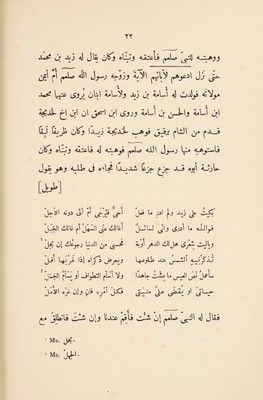 ٢٢
ووهبته للنبىّ صلعم فأعتقه وتبنّاه وكان يقال له زيد بن محمّد
حتى نزل ادعوهم لآبائهم الآية وزوّجه رسول الله صلعم أمّ أيمن
مولاته فولدت له أسامة بن زيد ولأسامة ابنان يُروى عنهما محمد
ابن أسامة والحسن بن أسامة وروى ابن اسحق ان ابن اخ لخديجة
قدم من الشام برقيق فوهب لخديجة زيدًا وكان ظريفًا لَبِقًا
فاستوهبه منها رسول الله صلعم فوهبته له فاعتقه وتبنّاه وكان
حارثة أبوه قد جزع جزعًا شديدًا فجاء فى طلبه وهو يقول
[طويل]
بكيتُ على زيد ولم ادرِ ما فعلْ أحىٌّ فيُرْتَجَى أمْ أتى دونه الأجلْ
فوالله ما أدرى وانّى لسائلٌ أغالك منّى السَّهْلُ أم غالك الجَبَلْ
ويا ليت شِعْرى هل لك الدهرَ أوبة فحسبى من الدنيا رجوعُك إن بَجَلْ ¹
تُذكّرنيه الشمسُ عند طلوعها ويعرض ذكراه إذا غَرْبُها أفلْ
سأعمل نَصّ العيس ما عِشْتُ جاهدًا ولا أسأم التطواف أو يَسْأمَ الجَمَلْ ²
حياتى أو يُقضَى علىّ منيّتى فكلُّ امرئٍ فانٍ وإن غرّه الأمَلْ
فقال له النبىّ صلعم إنْ شئتَ فأقِمْ عندنا وإن شئتَ فانطلقْ مع
¹ Ms. يجل.
² Ms. الجهل.